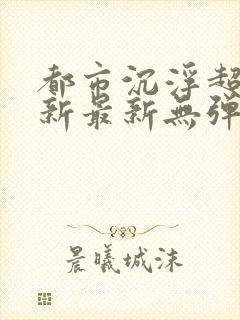 都市沉浮超
新最新無彈
晨曦城沫